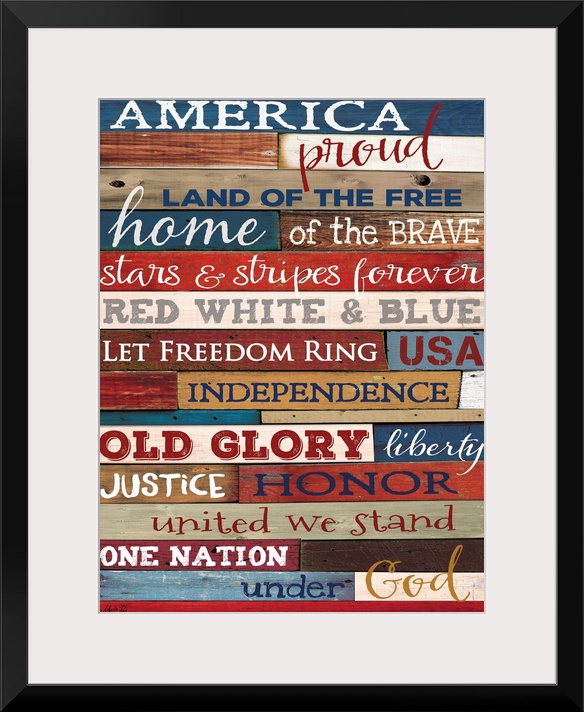 AMERICA
proud
LAND OF THE FREE
home of the BRAVE
stars & stripes forever
RED WHITE & BLUE
LET FREEDOM RING USA
INDEPENDENCE
OLD GLORY liberty
JUSTiCE HONOR
united we stand
ONE NATION
under God